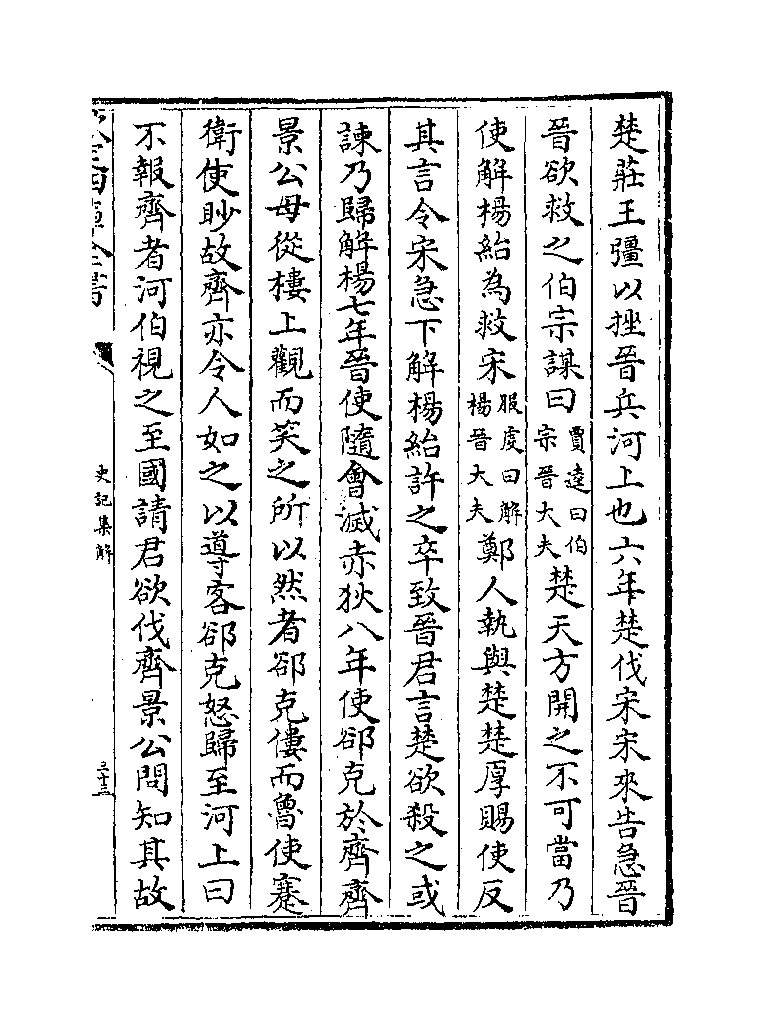 楚莊王彊以挫晉兵河上也六年楚伐宋宋來告急晉
晉欲救之伯宗謀曰賈逵曰伯宗晉大夫楚天方開之不可當乃
使解楊紿為救宋服虔曰解楊晉大夫鄭人執與楚楚厚賜使反
其言令宋急下解楊紿許之卒致晉君言楚欲殺之或
諫乃歸解楊七年晉使隨會滅赤狄八年使郤克於齊齊
景公母從樓上觀而笑之所以然者郤克僂而魯使蹇
衛使眇故齊亦令人如之以導客郤克怒歸至河上曰
不報齊者河伯視之至國請君欲伐齊景公問知其故
欽定四庫全書
史記集解
三十三